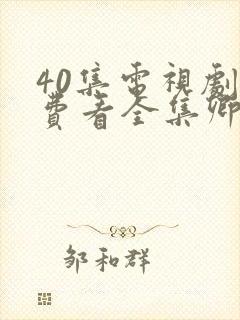 40集電視劇
費看全集卿
邹和群